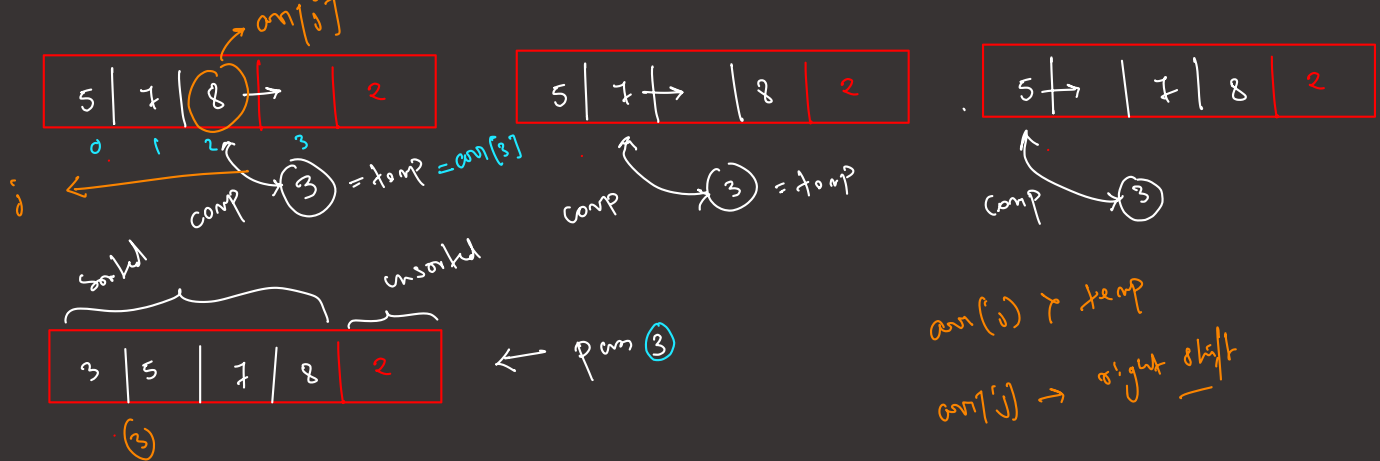 arr[j]
5 | 7 | 8 → 2
0 1 2 3
j
comp 3 = temp = arr[3]
5 | 7 → | 8 2
comp 3 = temp
5 → | 7 | 8 2
comp 3
sorted unsorted
3 | 5 | 7 | 8 2
← pass 3
3
arr(j) > temp
arr[j] → right shift